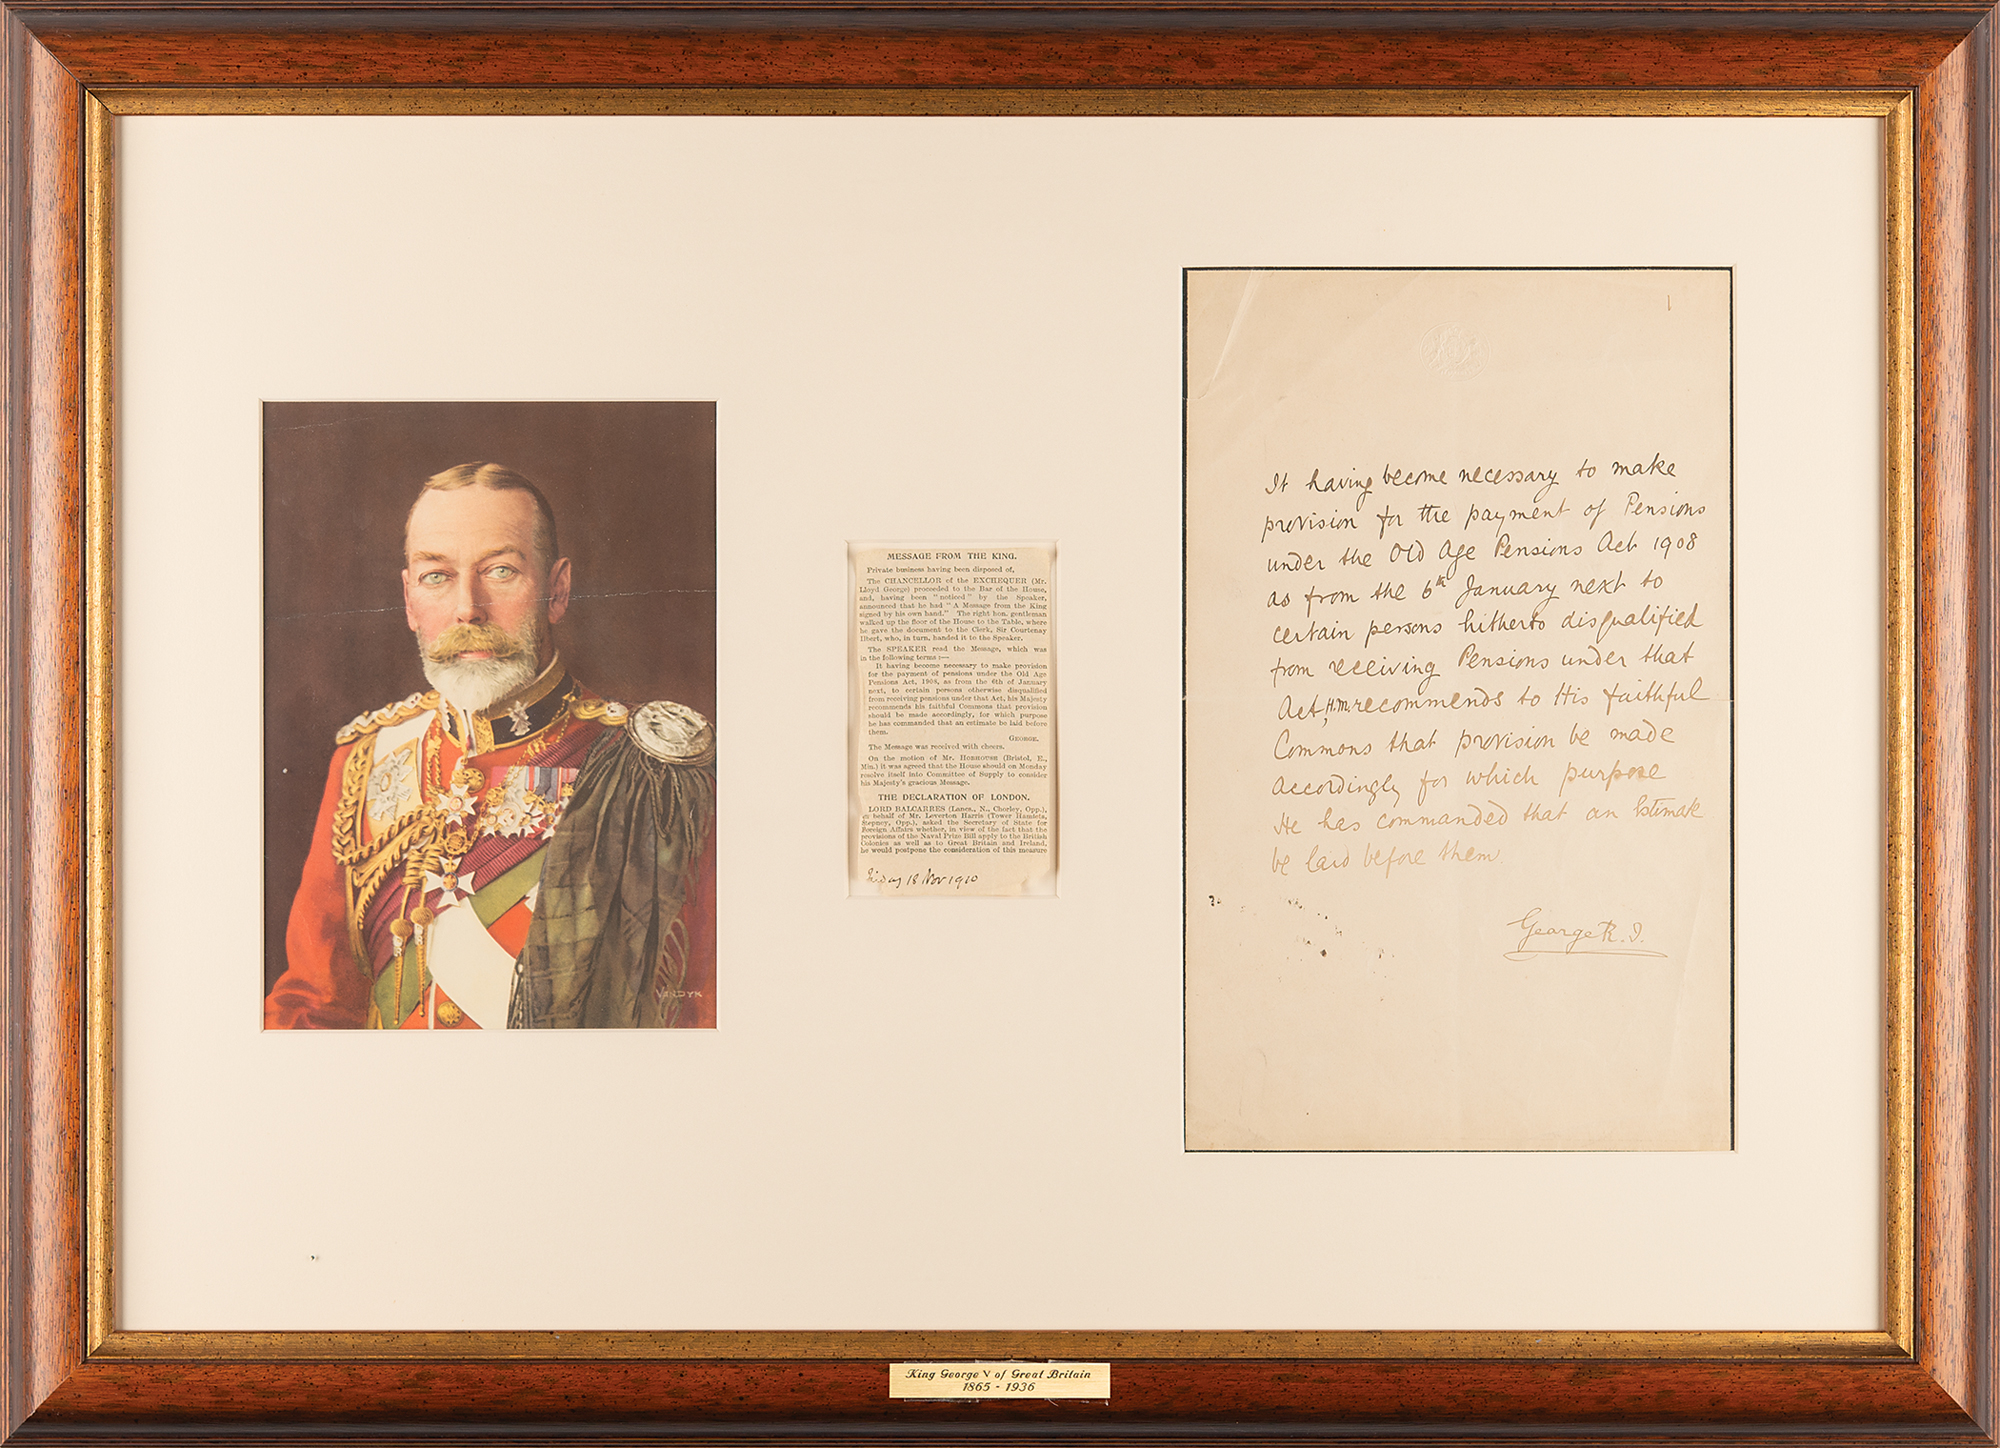 VANDYK
MESSAGE FROM THE KING.
Private business having been disposed of,
The CHANCELLOR of the EXCHEQUER (Mr.
Lloyd George) proceeded to the Bar of the House,
and, having been "noticed" by the Speaker,
announced that he had "A Message from the King
signed by his own hand." The right hon. gentleman
walked up the floor of the House to the Table, where
he gave the document to the Clerk, Sir Courtenay
Ilbert, who, in turn, handed it to the Speaker.
The SPEAKER read the Message, which was
in the following terms :—
It having become necessary to make provision
for the payment of pensions under the Old Age
Pensions Act, 1908, as from the 6th of January
next, to certain persons otherwise disqualified
from receiving pensions under that Act, his Majesty
recommends his faithful Commons that provision
should be made accordingly, for which purpose
he has commanded that an estimate be laid before
them.
GEORGE.
The Message was received with cheers.
On the motion of Mr. HOBHOUSE (Bristol, E.,
Min.) it was agreed that the House should on Monday
resolve itself into Committee of Supply to consider
his Majesty's gracious Message.
THE DECLARATION OF LONDON.
LORD BALCARRES (Lancs., N., Chorley, Opp.),
on behalf of Mr. Leverton Harris (Tower Hamlets,
Stepney, Opp.), asked the Secretary of State for
Foreign Affairs whether, in view of the fact that the
provisions of the Naval Prize Bill apply to the British
Colonies as well as to Great Britain and Ireland,
he would postpone the consideration of this measure
Friday 18 Nov 1910
It having become necessary to make
provision for the payment of Pensions
under the Old Age Pensions Act 1908
as from the 6th January next to
certain persons hitherto disqualified
from receiving Pensions under that
Act, H.M. recommends to His faithful
Commons that provision be made
accordingly for which purpose
He has commanded that an Estimate
be laid before them.
George R.I.
King George V of Great Britain
1865 - 1936